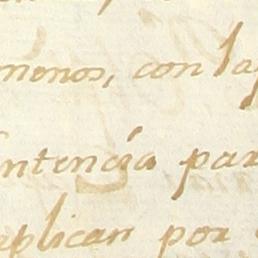 menos, con la
ntencia par
plican por